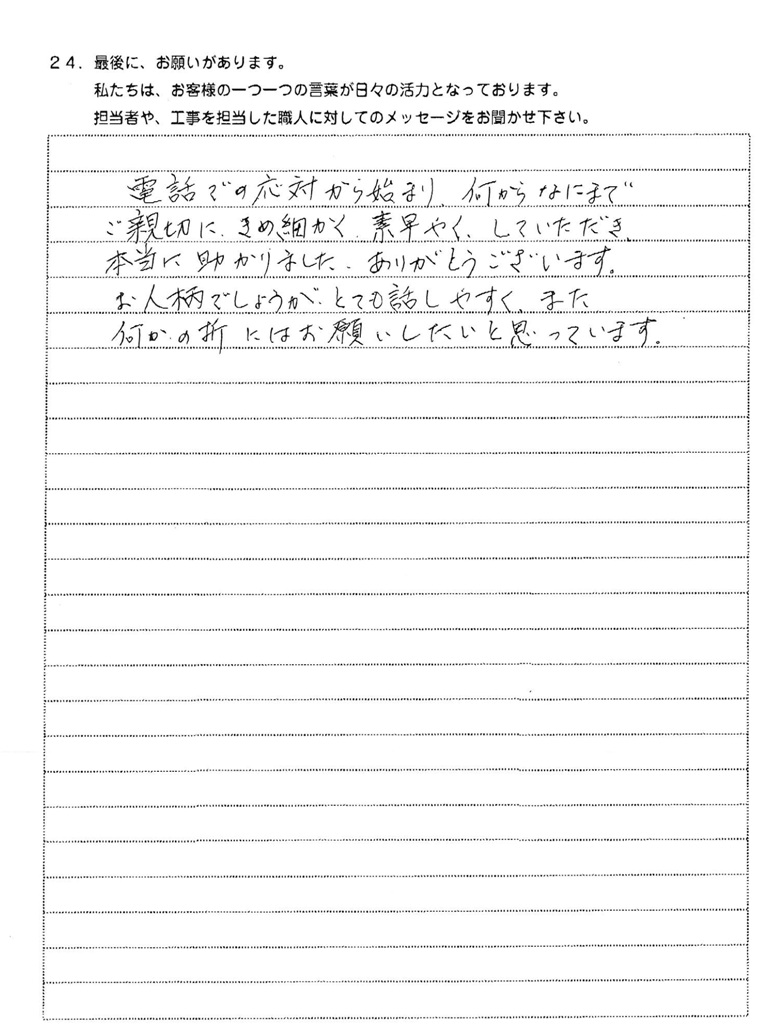 24．最後に、お願いがあります。
私たちは、お客様の一つ一つの言葉が日々の活力となっております。
担当者や、工事を担当した職人に対してのメッセージをお聞かせ下さい。
電話での応対から始まり、何からなにまで
ご親切に、きめ細かく、素早やく、していただき、
本当に助かりました、ありがとうございます。
お人柄でしょうが、とても話しやすく、また
何かの折にはお願いしたいと思っています。